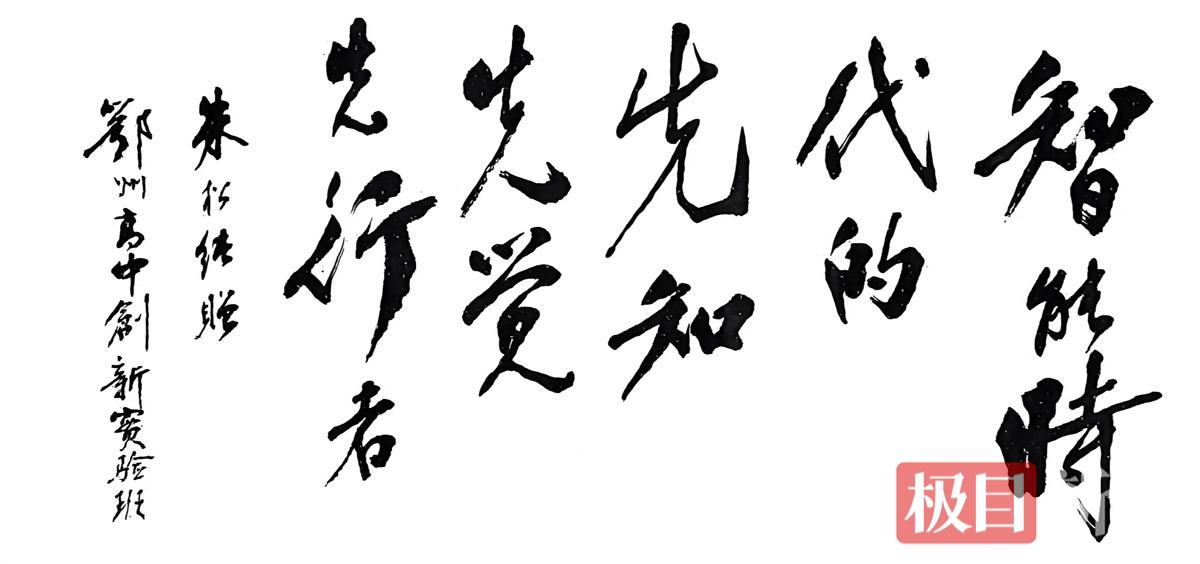 智能時
代的
先知
先觉
先行者
朱松纯贈
鄂州高中創新實验班
极目